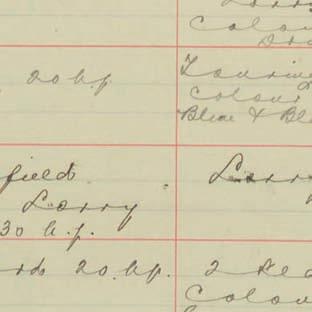 Lorry
Colou
20 h.p.
Touring
Colour
Blue & Bl
field
Lorry
30 h.p.
Lorry
rd 20 h.p.
2 Sea
Colou